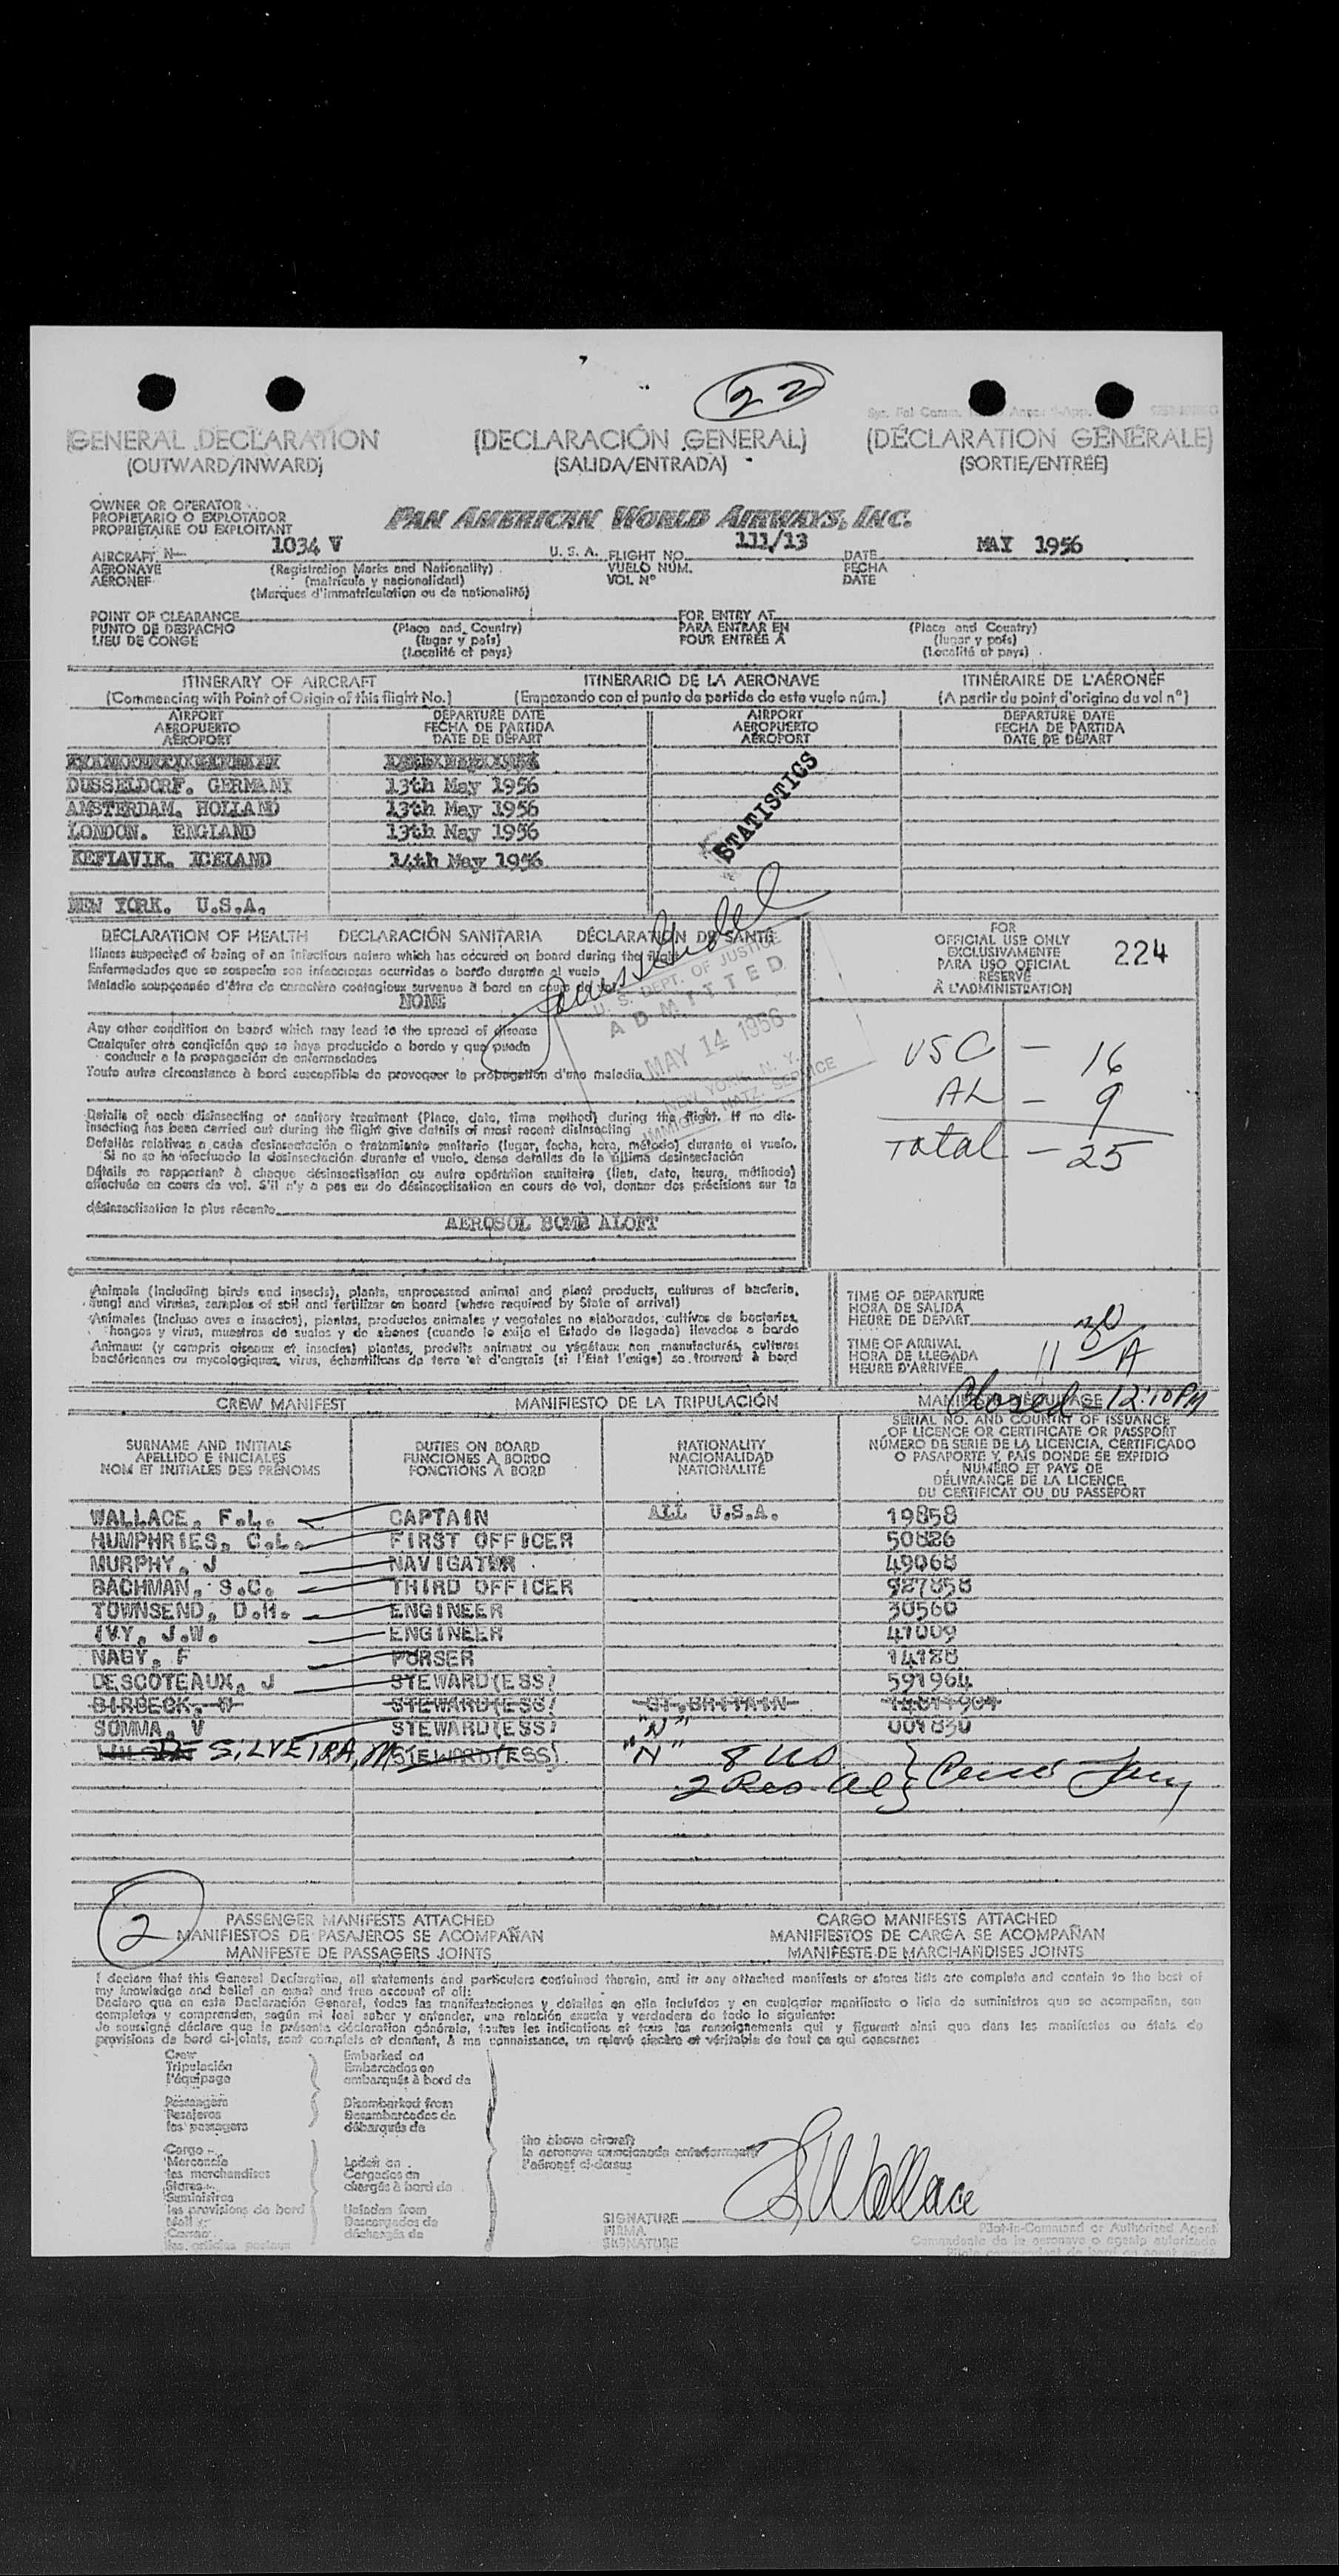 22
(GENERAL DECLARATION (DECLARACIÓN GENERAL) (DÉCLARATION GÉNÉRALE)
(OUTWARD/INWARD) (SALIDA/ENTRADA) (SORTIE/ENTRÉE)
OWNER OR OPERATOR
PROPIETARIO O EXPLOTADOR
PROPRIÉTAIRE OU EXPLOITANT
PAN AMERICAN WORLD AIRWAYS, INC.
AIRCRAFT N- 1034 V U. S. A. FLIGHT NO. 111/13 DATE MAY 1956
AERONAVE (Registration Marks and Nationality) VUELO NÚM. FECHA
AÉRONEF (matrícula y nacionalidad) VOL Nº DATE
(Marques d'immatriculation ou de nationalité)
POINT OF CLEARANCE FOR ENTRY AT
PUNTO DE DESPACHO (Place and Country) PARA ENTRAR EN (Place and Country)
LIEU DE CONGÉ (lugar y país) POUR ENTRÉE À (lugar y país)
(Localité et pays) (Localité et pays)
ITINERARY OF AIRCRAFT ITINERARIO DE LA AERONAVE ITINÉRAIRE DE L'AÉRONEF
(Commencing with Point of Origin of this flight No.) (Empezando con el punto de partida de este vuelo núm.) (A partir du point d'origine du vol nº)
AIRPORT DEPARTURE DATE AIRPORT DEPARTURE DATE
AEROPUERTO FECHA DE PARTIDA AEROPUERTO FECHA DE PARTIDA
AÉROPORT DATE DE DÉPART AÉROPORT DATE DE DÉPART
DUSSELDORF. GERMANY 13th May 1956
AMSTERDAM. HOLLAND 13th May 1956
LONDON. ENGLAND 13th May 1956
KEFLAVIK. ICELAND 14th May 1956
NEW YORK. U.S.A.
STATISTICS
DECLARATION OF HEALTH DECLARACIÓN SANITARIA DÉCLARATION DE SANTÉ
Illness suspected of being of an infectious nature which has occured on board during the flight
Enfermedades que se sospecha son infecciosas ocurridas a bordo durante el vuelo
Maladie soupçonnée d'être de caractère contagieux survenue à bord en cours de vol
NONE
Any other condition on board which may lead to the spread of disease
Cualquier otra condición que se haya producido a bordo y que pueda
conducir a la propagación de enfermedades
Toute autre circonstance à bord susceptible de provoquer la propagation d'une maladie
U. S. DEPT. OF JUSTICE
ADMITTED
MAY 14 1956
NEW YORK, N. Y.
IMMIGR. & NATZ. SERVICE
Details of each disinsecting or sanitary treatment (Place, date, time method) during the flight. If no dis-
insecting has been carried out during the flight give details of most recent disinsecting
Detalles relativos a cada desinsectación o tratamiento sanitario (lugar, fecha, hora, método) durante el vuelo.
Si no se ha efectuado la desinsectación durante el vuelo, dense detalles de la última desinsectación
Détails se rapportant à chaque désinsectisation ou autre opération sanitaire (lieu, date, heure, méthode)
effectuée en cours de vol. S'il n'y a pas eu de désinsectisation en cours de vol, donner des précisions sur la
désinsectisation la plus récente
AEROSOL BOMB ALOFT
FOR
OFFICIAL USE ONLY
EXCLUSIVAMENTE
PARA USO OFICIAL
RÉSERVÉ
À L'ADMINISTRATION
224
USC - 16
AL - 9
Total - 25
Animals (including birds and insects), plants, unprocessed animal and plant products, cultures of bacteria,
fungi and viruses, samples of soil and fertilizer on board (where required by State of arrival)
Animales (incluso aves e insectos), plantas, productos animales y vegetales no elaborados, cultivos de bacterias,
hongos y virus, muestras de suelos y de abonos (cuando lo exija el Estado de llegada) llevados a bordo
Animaux (y compris oiseaux et insectes) plantes, produits animaux ou végétaux non manufacturés, cultures
bactériennes ou mycologiques, virus, échantillons de terre et d'engrais (si l'État l'exige) se trouvant à bord
TIME OF DEPARTURE
HORA DE SALIDA
HEURE DE DÉPART
TIME OF ARRIVAL
HORA DE LLEGADA
HEURE D'ARRIVÉE 11 30 A
Closed - 12:10 PM
CREW MANIFEST MANIFIESTO DE LA TRIPULACIÓN
SURNAME AND INITIALS DUTIES ON BOARD NATIONALITY SERIAL NO. AND COUNTRY OF ISSUANCE
APELLIDO E INICIALES FUNCIONES A BORDO NACIONALIDAD OF LICENCE OR CERTIFICATE OR PASSPORT
NOM ET INITIALES DES PRÉNOMS FONCTIONS À BORD NATIONALITÉ NÚMERO DE SERIE DE LA LICENCIA, CERTIFICADO
O PASAPORTE Y PAÍS DONDE SE EXPIDIÓ
NUMÉRO ET PAYS DE
DÉLIVRANCE DE LA LICENCE
DU CERTIFICAT OU DU PASSEPORT
WALLACE, F.L. CAPTAIN ALL U.S.A. 19858
HUMPHRIES, C.L. FIRST OFFICER 50826
MURPHY, J NAVIGATOR 49068
BACHMAN, S.C. THIRD OFFICER 987858
TOWNSEND, D.H. ENGINEER 30560
IVY, J.W. ENGINEER 47009
NAGY, F PURSER 14188
DESCOTEAUX, J STEWARD(ESS) 591964
BIRBECK, M STEWARD(ESS) GT.BRITAIN
SOMMA, V STEWARD(ESS) "N" 001830
DE SILVEIRA, M STEWARD(ESS) "N" 8 US
2 Res. Al
2
PASSENGER MANIFESTS ATTACHED CARGO MANIFESTS ATTACHED
MANIFIESTOS DE PASAJEROS SE ACOMPAÑAN MANIFIESTOS DE CARGA SE ACOMPAÑAN
MANIFESTE DE PASSAGERS JOINTS MANIFESTE DE MARCHANDISES JOINTS
I declare that this General Declaration, all statements and particulars contained therein, and in any attached manifests or stores lists are complete and contain to the best of
my knowledge and belief an exact and true account of all:
Declaro que en esta Declaración General, todas las manifestaciones y detalles en ella incluídos y en cualquier manifiesto o lista de suministros que se acompañan, son
completos y comprenden, según mi leal saber y entender, una relación exacta y verdadera de todo lo siguiente:
Je soussigné déclare que la présente déclaration générale, toutes les indications et tous les renseignements qui y figurent ainsi que dans les manifestes ou états de
provisions de bord ci-joints, sont complets et donnent, à ma connaissance, un relevé sincère et véritable de tout ce qui concerne:
Crew Embarked on
Tripulación Embarcados en
l'équipage embarqués à bord de
Passengers Disembarked from
Pasajeros Desembarcados de
les passagers débarqués de
Cargo
Mercancía Laden on
les marchandises Cargados en
Stores chargés à bord de
Suministros
les provisions de bord Unladen from
Mail Descargados de
Correo déchargés de
les articles postaux
the above aircraft
la aeronave mencionada anteriormente
l'aéronef ci-dessus
SIGNATURE
FIRMA
SIGNATURE
F L Wallace
Pilot-in-Command or Authorized Agent
Comandante de la aeronave o agente autorizado